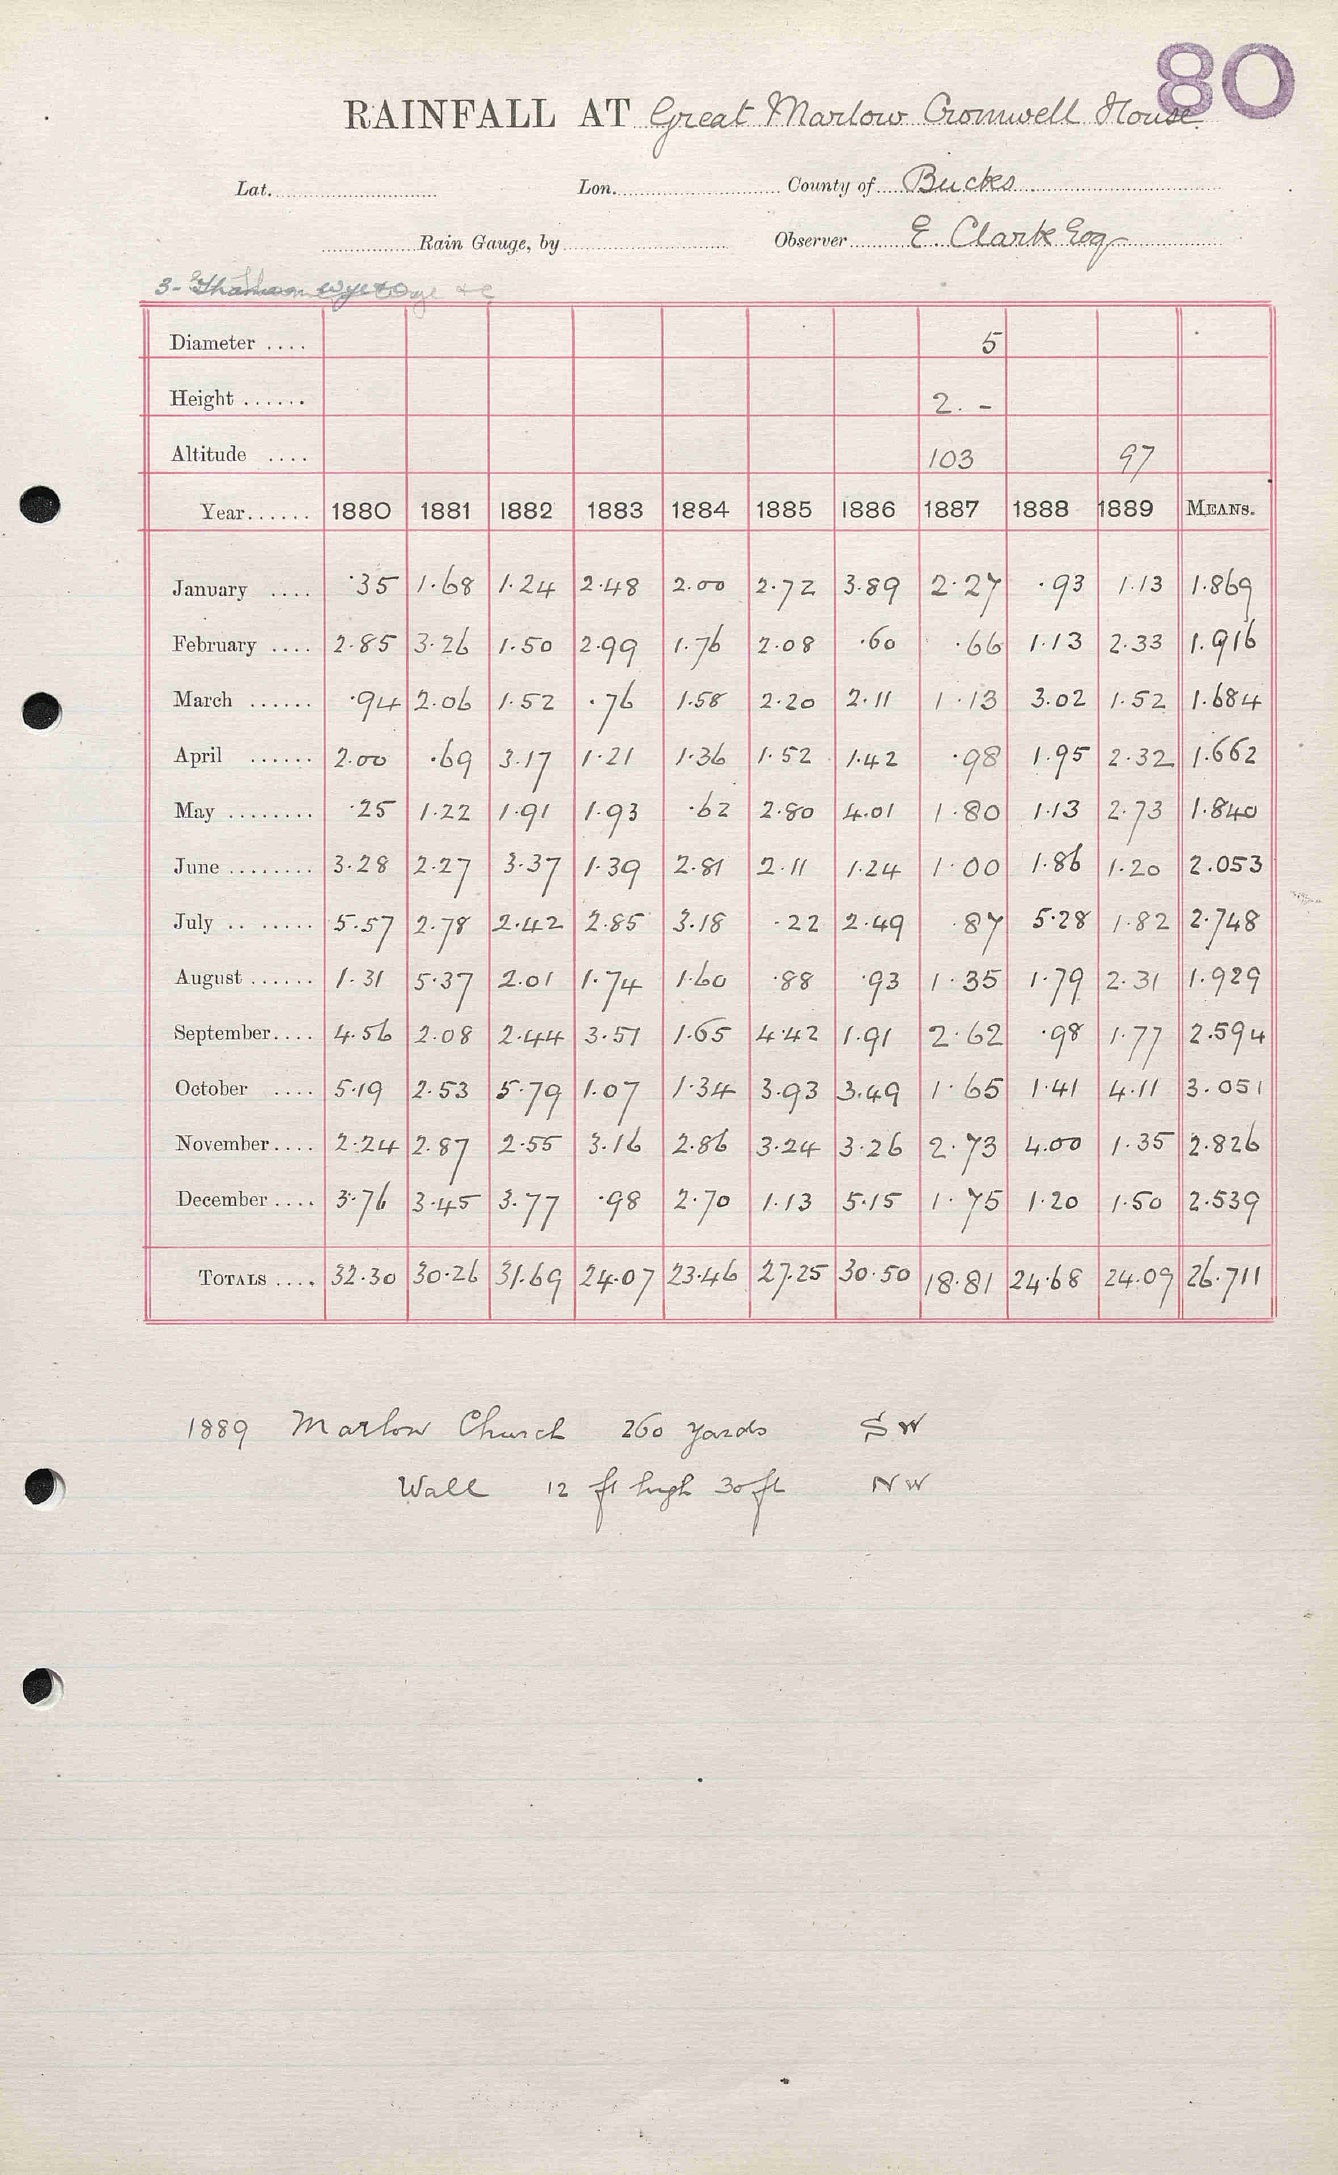 80
RAINFALL AT Great Marlow Cromwell House
Lat. Lon. County of Bucks
Rain Gauge, by Observer E. Clark Esq
3-
Diameter .... 5
Height ...... 2. -
Altitude .... 103 97
Year...... 1880 1881 1882 1883 1884 1885 1886 1887 1888 1889 MEANS.
January .... .35 1.68 1.24 2.48 2.00 2.72 3.89 2.27 .93 1.13 1.869
February .... 2.85 3.26 1.50 2.99 1.76 2.08 .60 .66 1.13 2.33 1.916
March ...... .94 2.06 1.52 .76 1.58 2.20 2.11 1.13 3.02 1.52 1.684
April ...... 2.00 .69 3.17 1.21 1.36 1.52 1.42 .98 1.95 2.32 1.662
May ........ .25 1.22 1.91 1.93 .62 2.80 4.01 1.80 1.13 2.73 1.840
June ........ 3.28 2.27 3.37 1.39 2.81 2.11 1.24 1.00 1.86 1.20 2.053
July .. ...... 5.57 2.78 2.42 2.85 3.18 .22 2.49 .87 5.28 1.82 2.748
August ...... 1.31 5.37 2.01 1.74 1.60 .88 .93 1.35 1.79 2.31 1.929
September.... 4.56 2.08 2.44 3.51 1.65 4.42 1.91 2.62 .98 1.77 2.594
October .... 5.19 2.53 5.79 1.07 1.34 3.93 3.49 1.65 1.41 4.11 3.051
November.... 2.24 2.87 2.55 3.16 2.86 3.24 3.26 2.73 4.00 1.35 2.826
December .... 3.76 3.45 3.77 .98 2.70 1.13 5.15 1.75 1.20 1.50 2.539
TOTALS .... 32.30 30.26 31.69 24.07 23.46 27.25 30.50 18.81 24.68 24.09 26.711
1889 Marlow Church 260 yards SW
Wall 12 ft high 30 ft NW